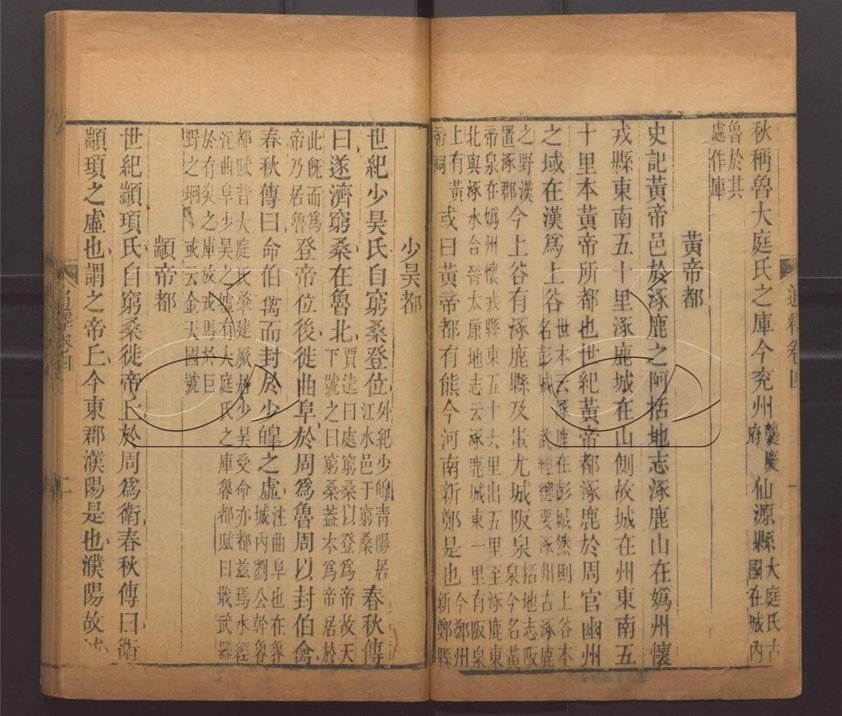 秋稱魯大庭氏之庫今兖州襲慶府仙源縣大庭氏古國在城内
魯於其處作庫
黃帝都
史記黃帝邑於涿鹿之阿括地志涿鹿山在媯州懷
戎縣東南五十里涿鹿城在山側故城在州東南五
十里本黃帝所都也世紀黃帝都涿鹿於周官幽州
之域在漢爲上谷世本云涿鹿在彭城然則上谷本名彭城武經總要涿州古涿鹿
之野漢置涿郡今上谷有涿鹿縣及蚩尤城阪泉括地志阪泉今名黃
帝泉在媯州懷戎縣東五十六里出五里至涿鹿東
北與涿水合晉太康地志云涿鹿城東一里有阪泉
上有黃帝祠或曰黃帝都有熊今河南新鄭是也今鄭州新鄭縣
少昊都
世紀少昊氏自窮桑登位外紀少皥青陽居江水邑于窮桑春秋傳
曰遂濟窮桑在魯北賈逵曰處窮桑以登爲帝故天下號之曰窮桑蓋本爲帝居於
此旣而爲帝乃居魯登帝位後徙曲阜於周爲魯周以封伯禽
春秋傳曰命伯禽而封於少皥之虛注曲阜也在魯城内劉公幹魯
都賦昔大庭氏肇建厥居少昊受命亦都兹焉水經
注曲阜少昊之墟有大庭氏之庫魯都賦曰戢武器
於有炎之庫放戎馬於巨野之坰或云金天國號
顓帝都
世紀顓頊氏自窮桑徙帝丘於周爲衛春秋傳曰衛
顓頊之虛也謂之帝丘今東郡濮陽是也濮陽故城
通釋卷四